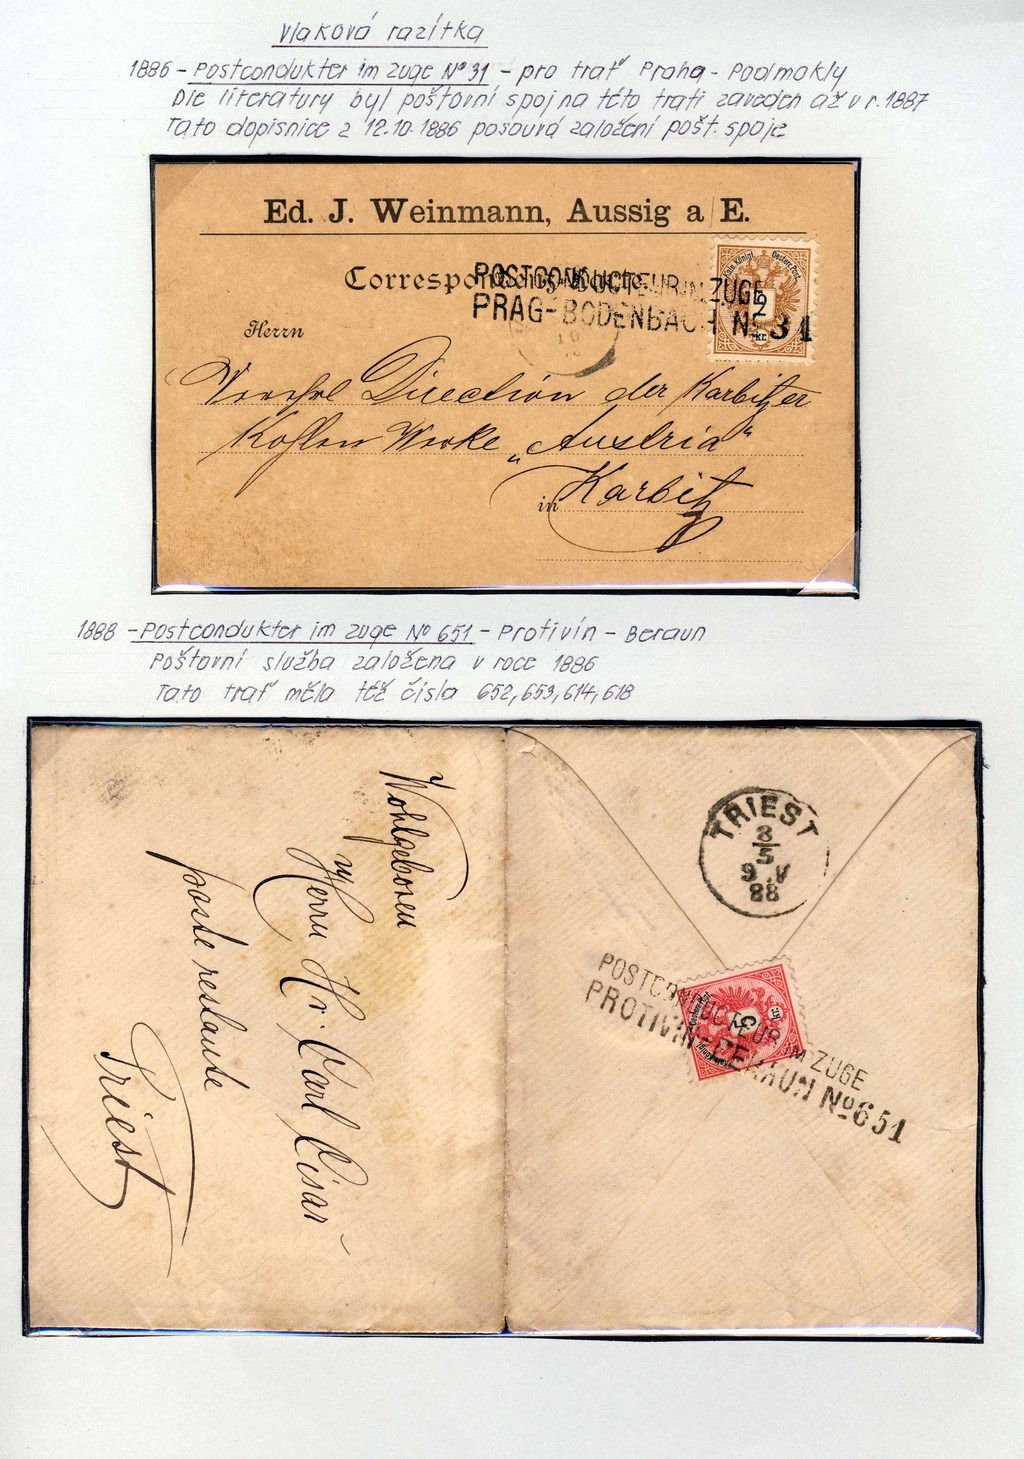 vlaková razítka
1886 - Postcondukter im zuge Nº 31 - pro trať Praha - Podmokly
Dle literatury byl poštovní spoj na této trati zaveden až v r. 1887
Tato dopisnice z 12.10.1886 posouvá založení pošt. spoje
Ed. J. Weinmann, Aussig a/E.
Correspondenz-Karte.
POSTCONDUCTEUR IM ZUGE
PRAG-BODENBACH Nº 31
Kais. Königl. Oesterr. Post.
2
kr.
10
Herrn
Direction der Karbitzer
Kohlen Werke „Austria“
in Karbitz
1888 - Postcondukter im zuge Nº 651 - Protivín - Beraun
Poštovní služba založena v roce 1886
Tato trať měla též čísla 652, 653, 614, 618
Wohlgeboren
Herrn Hr. Carl Cisar
poste restante
Triest
TRIEST
8/5
9.V
88
POSTCONDUCTEUR IM ZUGE
PROTIVIN-BERAUN Nº 651
5
kr.